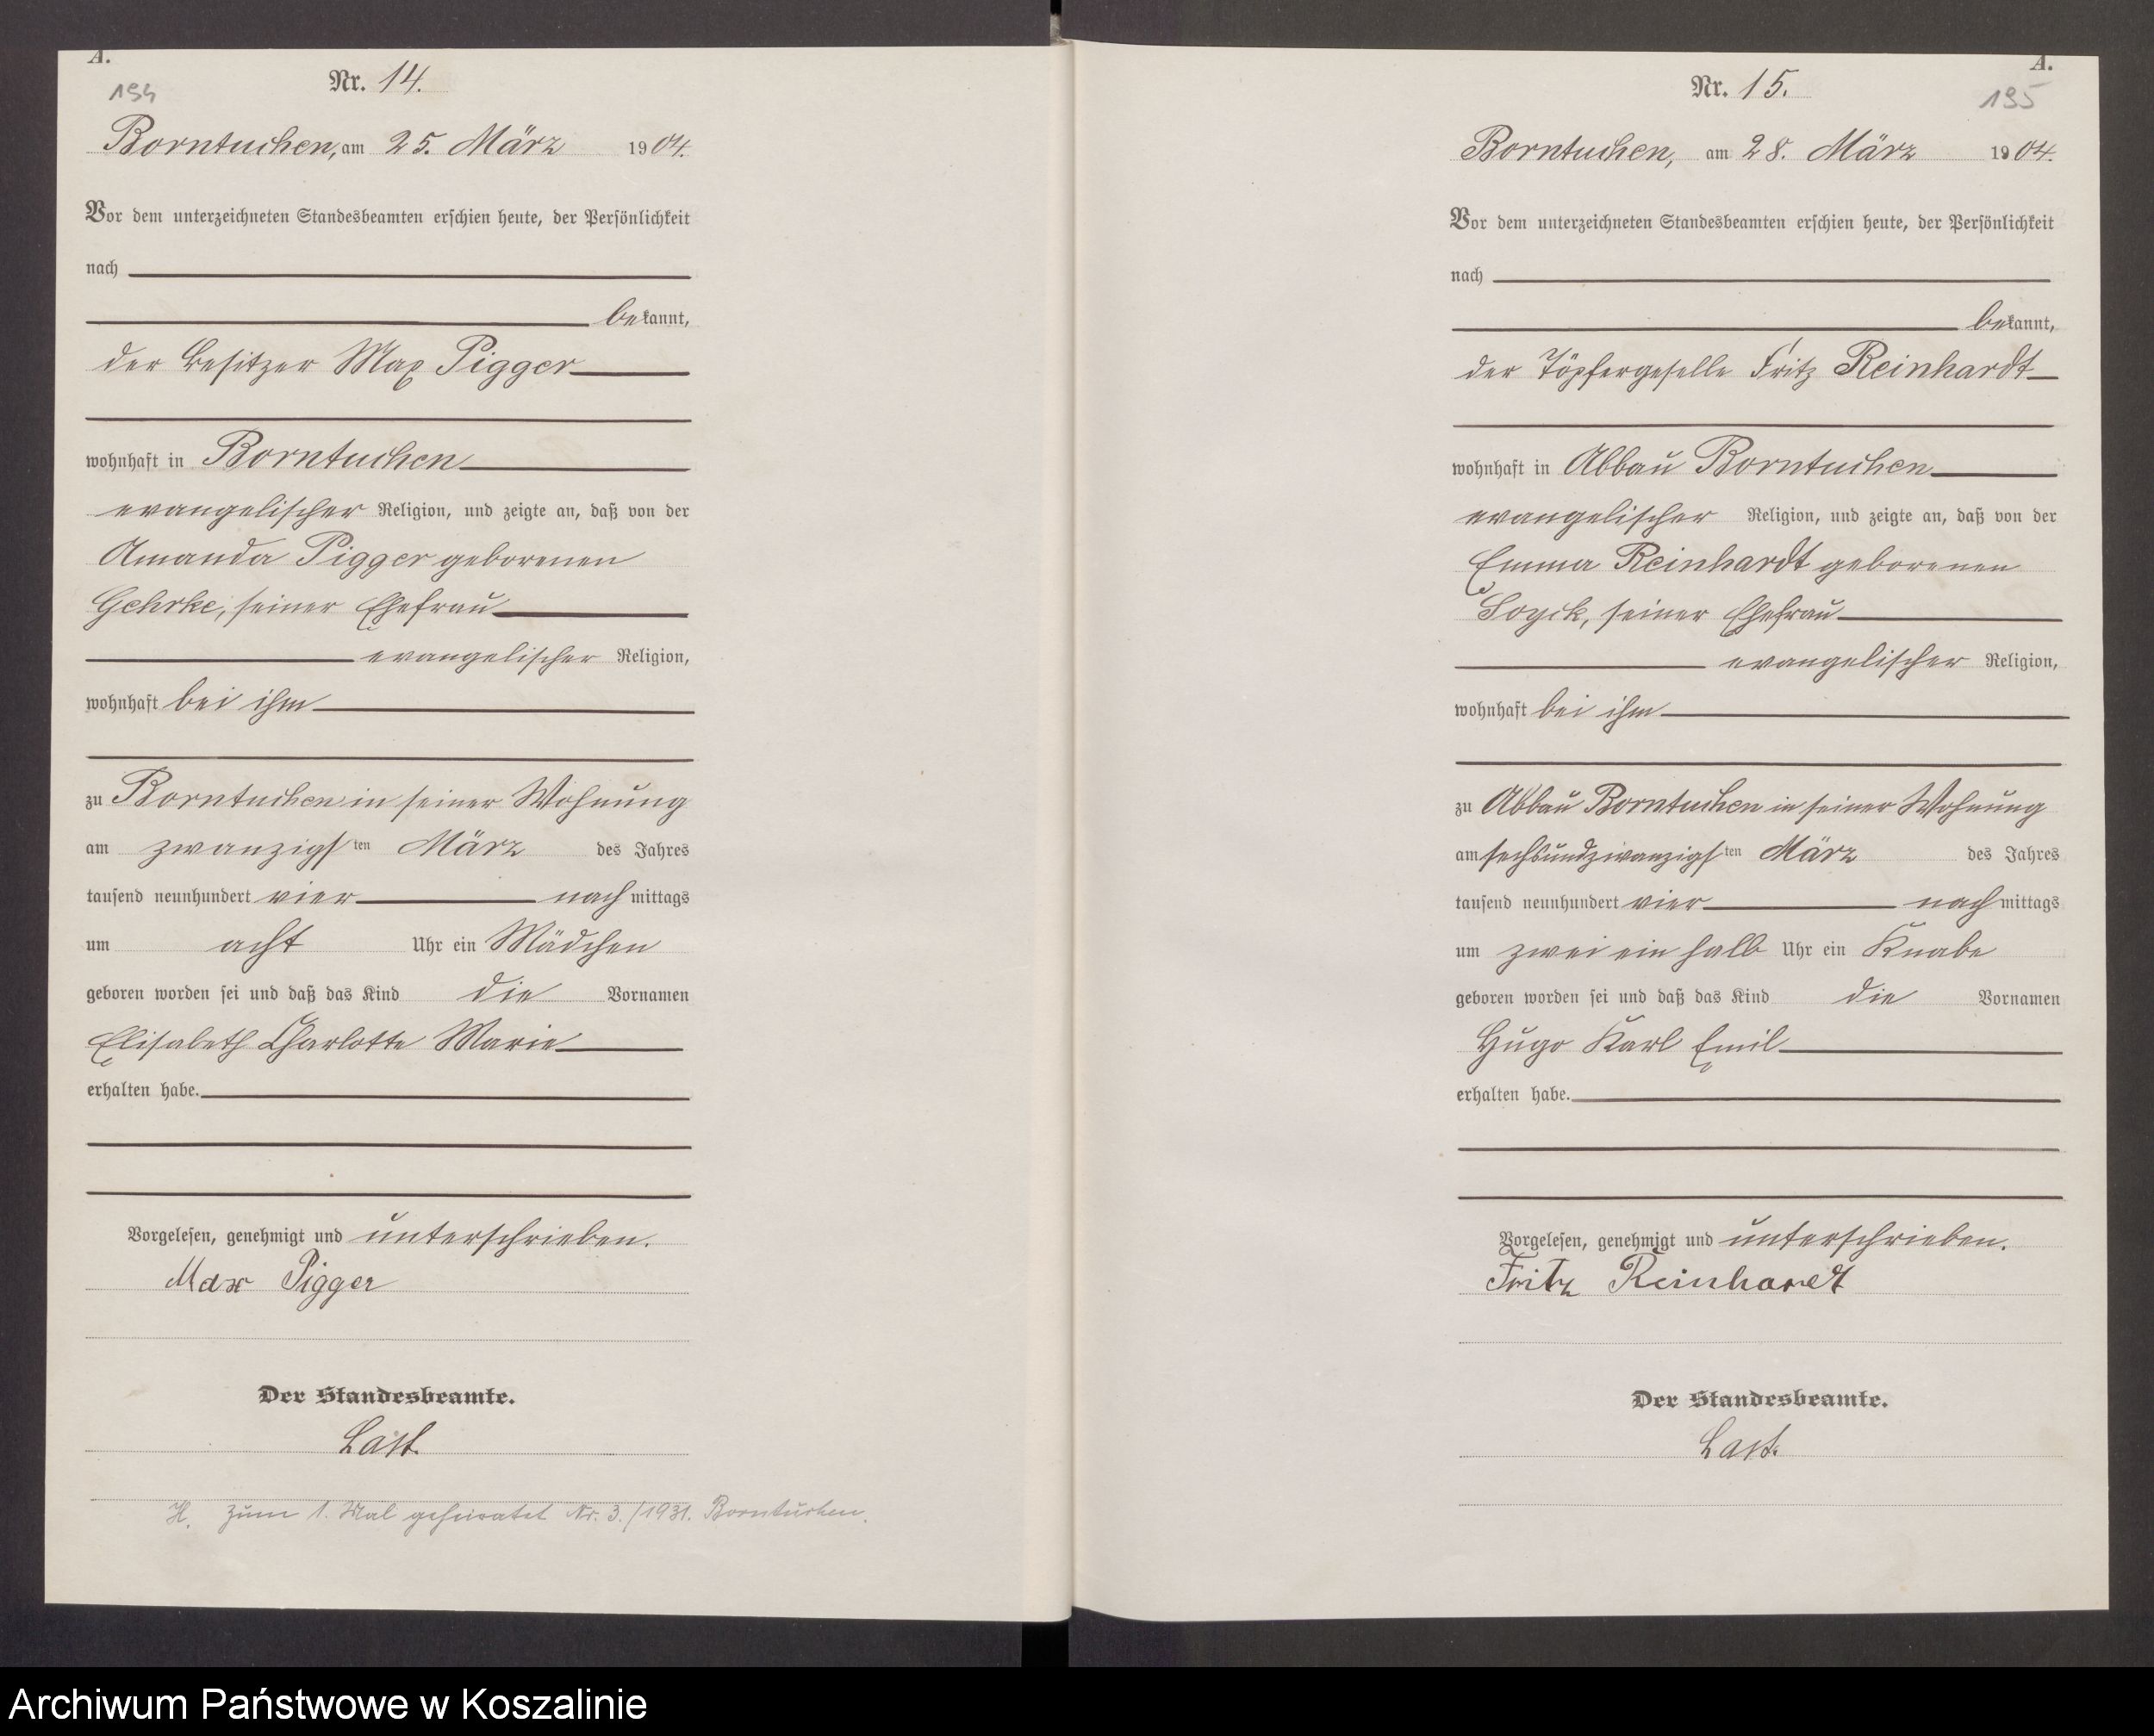 A.
194
Nr. 14.
Borntuchen, am 25. März 1904.
Vor dem unterzeichneten Standesbeamten erschien heute, der Persönlichkeit
nach
bekannt,
der Besitzer Max Pigger
wohnhaft in Borntuchen
evangelischer Religion, und zeigte an, daß von der
Amanda Pigger geborenen
Gehrke, seiner Ehefrau
evangelischer Religion,
wohnhaft bei ihm
zu Borntuchen in seiner Wohnung
am zwanzigsten März des Jahres
tausend neunhundert vier nachmittags
um acht Uhr ein Mädchen
geboren worden sei und daß das Kind die Vornamen
Elisabeth Charlotte Marie
erhalten habe.
Vorgelesen, genehmigt und unterschrieben.
Max Pigger
Der Standesbeamte.
Last.
H. Zum 1. Mal geheiratet Nr. 3./1931. Borntuchen.
A.
195
Nr. 15.
Borntuchen, am 28. März 1904.
Vor dem unterzeichneten Standesbeamten erschien heute, der Persönlichkeit
nach
bekannt,
der Töpfergeselle Fritz Reinhardt
wohnhaft in Abbau Borntuchen
evangelischer Religion, und zeigte an, daß von der
Emma Reinhardt geborenen
seiner Ehefrau
evangelischer Religion,
wohnhaft bei ihm
zu Abbau Borntuchen in seiner Wohnung
am sechsundzwanzigsten März des Jahres
tausend neunhundert vier nachmittags
um zwei ein halb Uhr ein Knabe
geboren worden sei und daß das Kind die Vornamen
Hugo Karl Emil
erhalten habe.
Vorgelesen, genehmigt und unterschrieben.
Fritz Reinhardt
Der Standesbeamte.
Last.
Archiwum Państwowe w Koszalinie